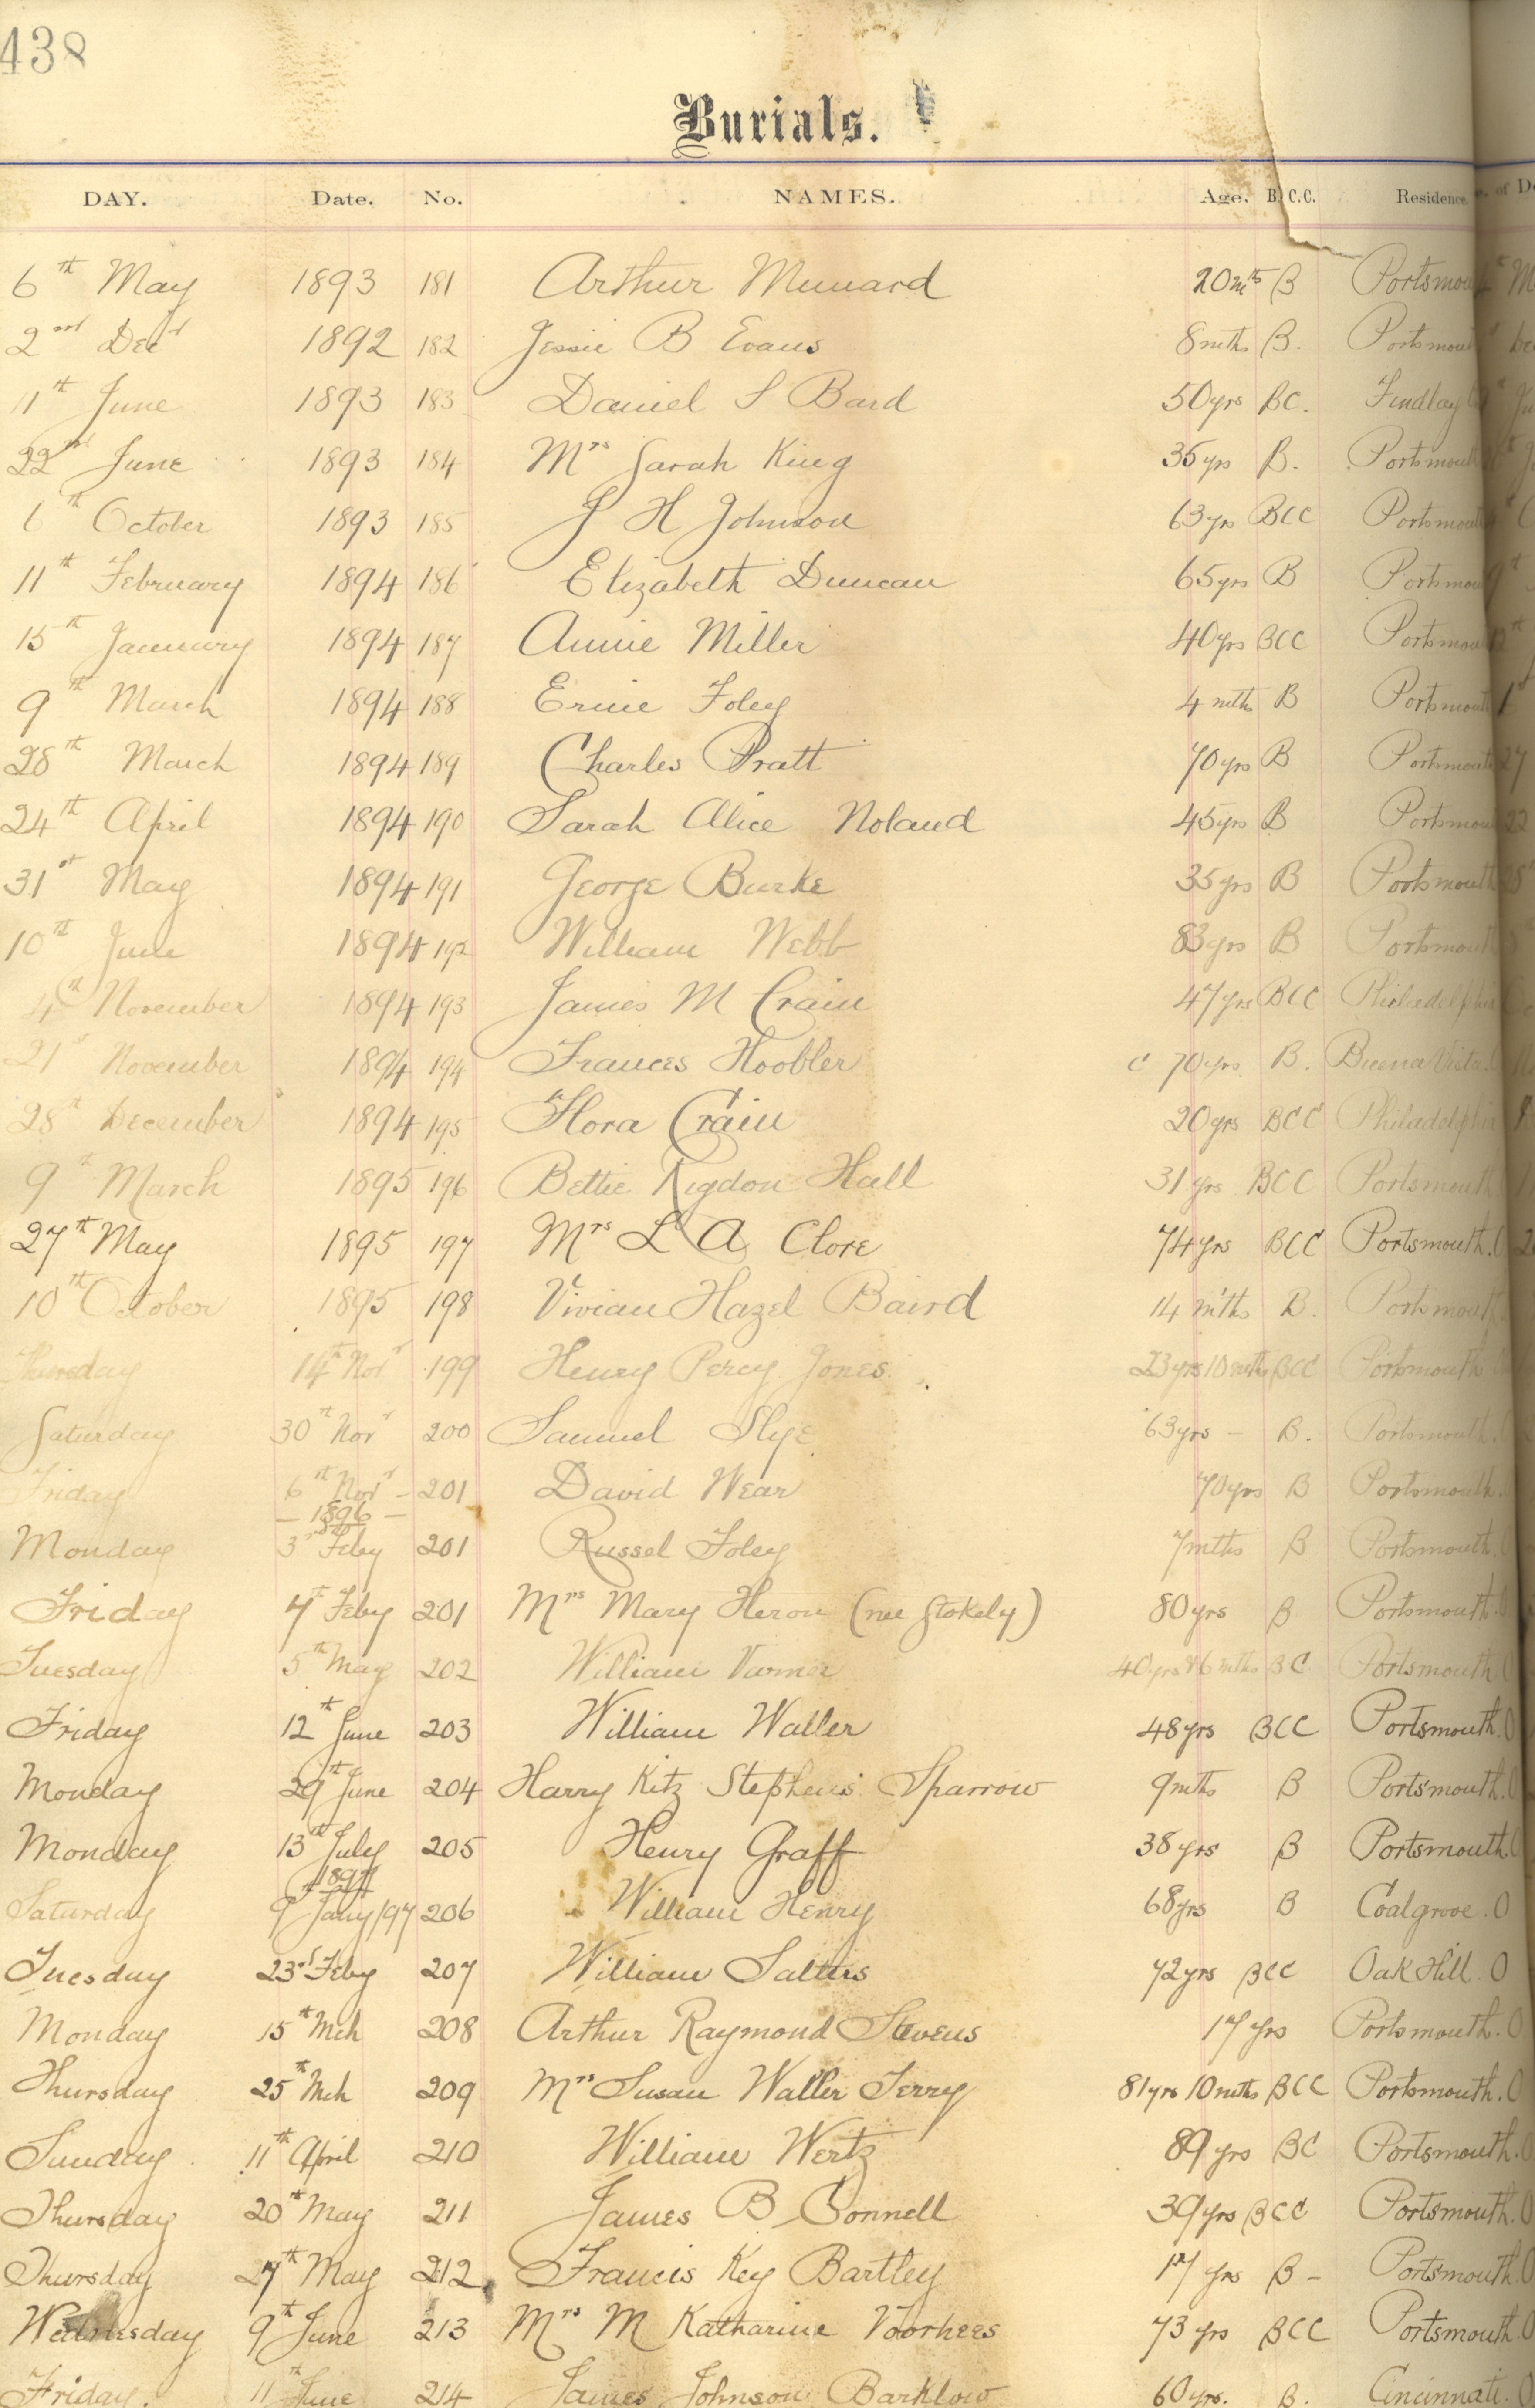 438
Burials.
DAY. Date. No. NAMES. Age. B.C.C. Residence. of De
6th May 1893 181 Arthur Munard 20mts B Portsmou
2nd Decr 1892 182 Jessie B Evans 8mths B. Portsmout
11th June 1893 183 Daniel S Bard 50yrs BC. Findlay
22nd June 1893 184 Mrs Sarah King 35yrs B. Portsmouth
October 1893 185 J H Johnson 63yrs BCC Portsmout
11th February 1894 186 Elizabeth Duncan 65yrs B Portsmou
15th January 1894 187 Annie Miller 40yrs BCC Portsmou
9th March 1894 188 Ernie Foley 4 mths B Portsmout
28th March 1894 189 Charles Pratt 70yrs B Portsmout 27
24th April 1894 190 Sarah Alice Noland 45yrs B Portsmou 22
31st May 1894 191 George Burke 35yrs B Portsmouth
10th June 1894 192 William Webb 83yrs B Portsmout
4th November 1894 193 James M Crain 47yrs BCC Philadelphia
21st November 1894 194 Frances Hoobler c 70yrs. B. Buena Vista.
28th December 1894 195 Flora Crain 20yrs BCC Philadelphia
9th March 1895 196 Bettie Rigdon Hall 31 yrs BCC Portsmouth
27th May 1895 197 Mrs L A Clore 74yrs BCC Portsmouth. O
10th October 1895 198 Vivian Hazel Baird 14 mths B. Portsmouth
Thursday 14th Novr 199 Henry Percy Jones. 23yrs 10mths BCC Portsmouth
Saturday 30th Novr 200 Samuel Slye 63yrs - B. Portsmouth.
Friday 6th Novr - 201 David Wear 70yrs B Portsmouth.
- 1896 -
Monday 3rd Feby 201 Russel Foley 7mths B Portsmouth.
Friday 7th Feby 201 Mrs Mary Heron (nee Stokely) 80yrs B Portsmouth. O
Tuesday 5th May 202 William Varner 40yrs & 6 mths BC Portsmouth O
Friday 12th June 203 William Waller 48yrs BCC Portsmouth. O
Monday 29th June 204 Harry Kitz Stephens Sparrow 9mths B Portsmouth. O
Monday 13th July 205 Henry Graff 38yrs B Portsmouth. O
1897
Saturday 9th Jany/97 206 William Henry 68yrs B Coalgrove. O
Tuesday 23rd Feby 207 William Salters 72yrs BCC Oak Hill. O
Monday 15th Mch 208 Arthur Raymond Stevens 17 yrs Portsmouth. O
Thursday 25th Mch 209 Mrs Susan Waller Terry 81yrs 10mths BCC Portsmouth. O
Sunday 11th April 210 William Wertz 89 yrs BC Portsmouth. O
Thursday 20th May 211 James B Connell 39yrs BCC Portsmouth. O
Thursday 27th May 212 Francis Key Bartley 17 yrs B - Portsmouth. O
Wednesday 9th June 213 Mrs M Katharine Voorhees 73 yrs BCC Portsmouth. O
Friday. 11th June 214 James Johnson Barklow 60yrs. B. Cincinnati. O